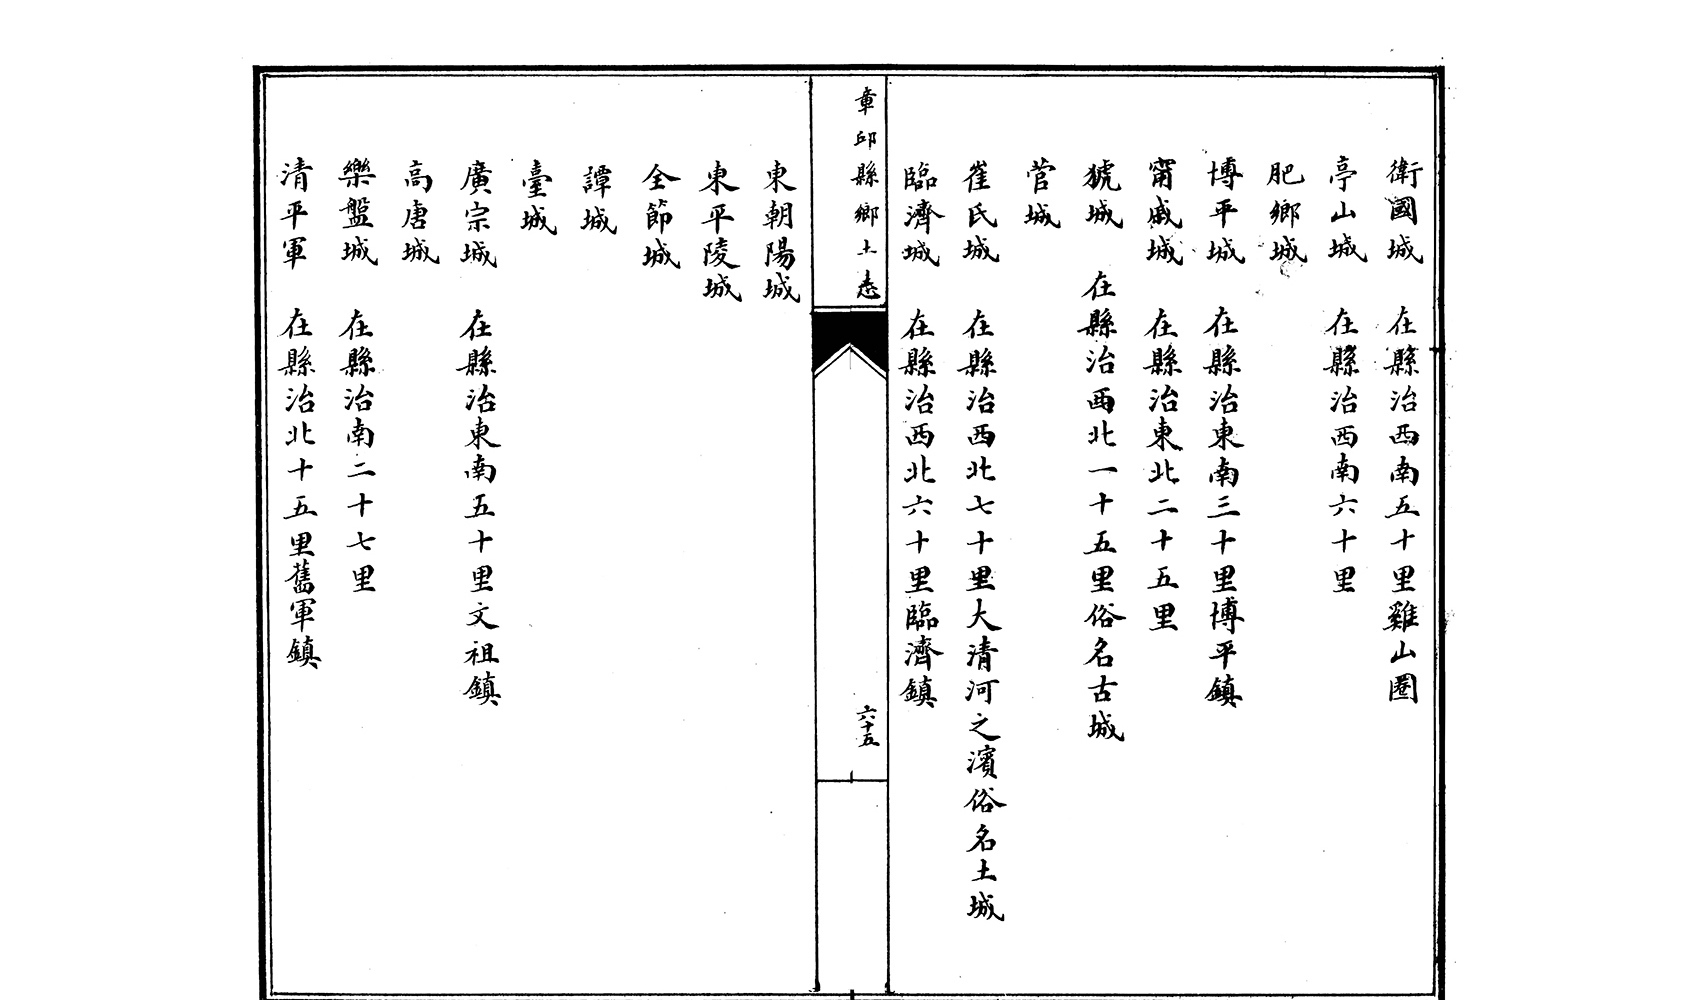 衛國城 在縣治西南五十里雞山圈
亭山城 在縣治西南六十里
肥鄉城
博平城 在縣治東南三十里博平鎮
甯戚城 在縣治東北二十五里
猇城 在縣治西北一十五里俗名古城
菅城
崔氏城 在縣治西北七十里大清河之濱俗名土城
臨濟城 在縣治西北六十里臨濟鎮
章邱縣鄉土志
六十五
東朝陽城
東平陵城
全節城
譚城
臺城
廣宗城 在縣治東南五十里文祖鎮
高唐城
樂盤城 在縣治南二十七里
清平軍 在縣治北十五里舊軍鎮